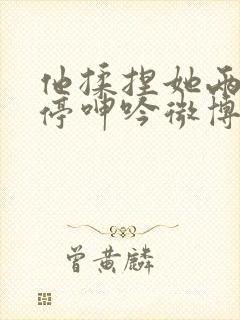 他揉捏她两
停呻吟微博
曾黄麟